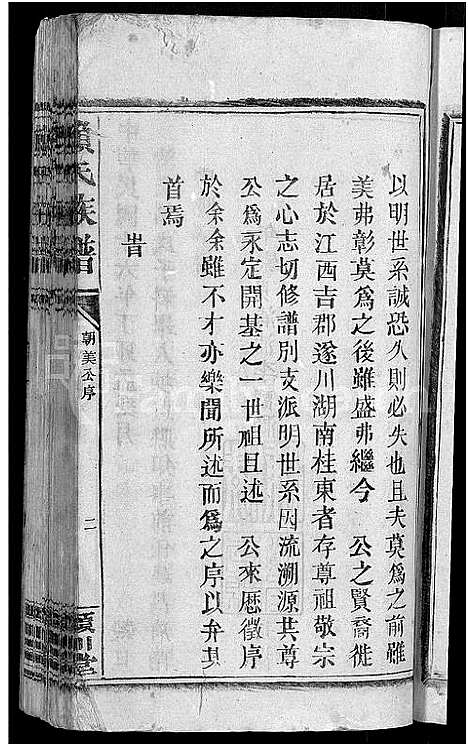 以明世系誠恐久則必失也且夫莫爲之前雖
美弗彰莫爲之後雖盛弗繼今 公之賢裔徙
居於江西吉郡遂川湖南桂東者存尊祖敬宗
之心志切修譜別支派明世系因流溯源共尊
公爲永定開基之一世祖且述 公來歷徵序
於余余雖不才亦樂聞所述而爲之序以弁其
首焉
旹
氏族譜
朝美公序
二
堂